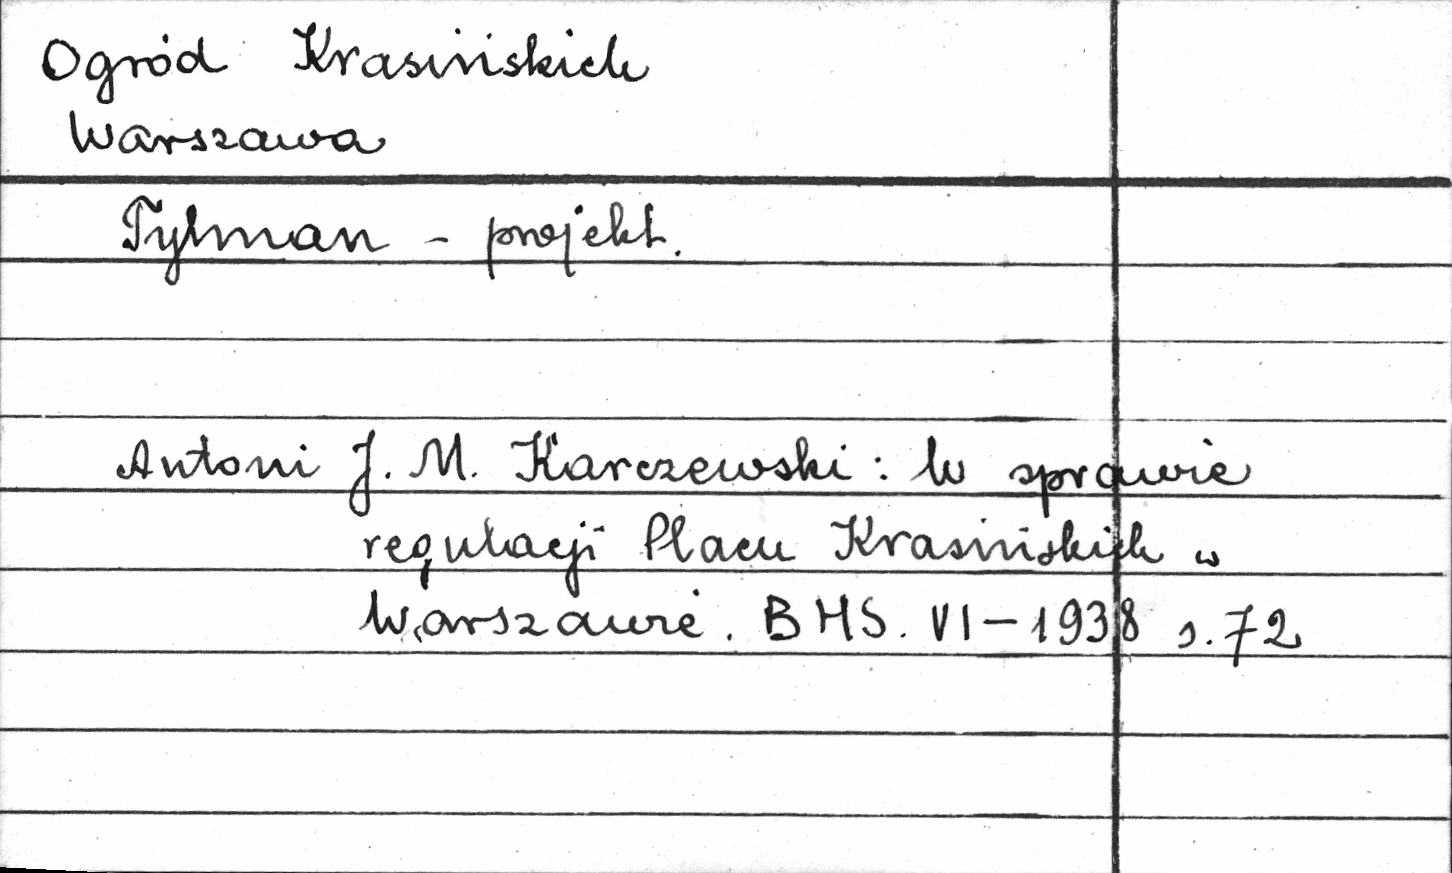 Ogród Krasińskich
Warszawa
Tylman - projekt.
Antoni J. M. Karczewski: W sprawie
regulacji Placu Krasińskich w
Warszawie. BHS. VI-1938 s. 72